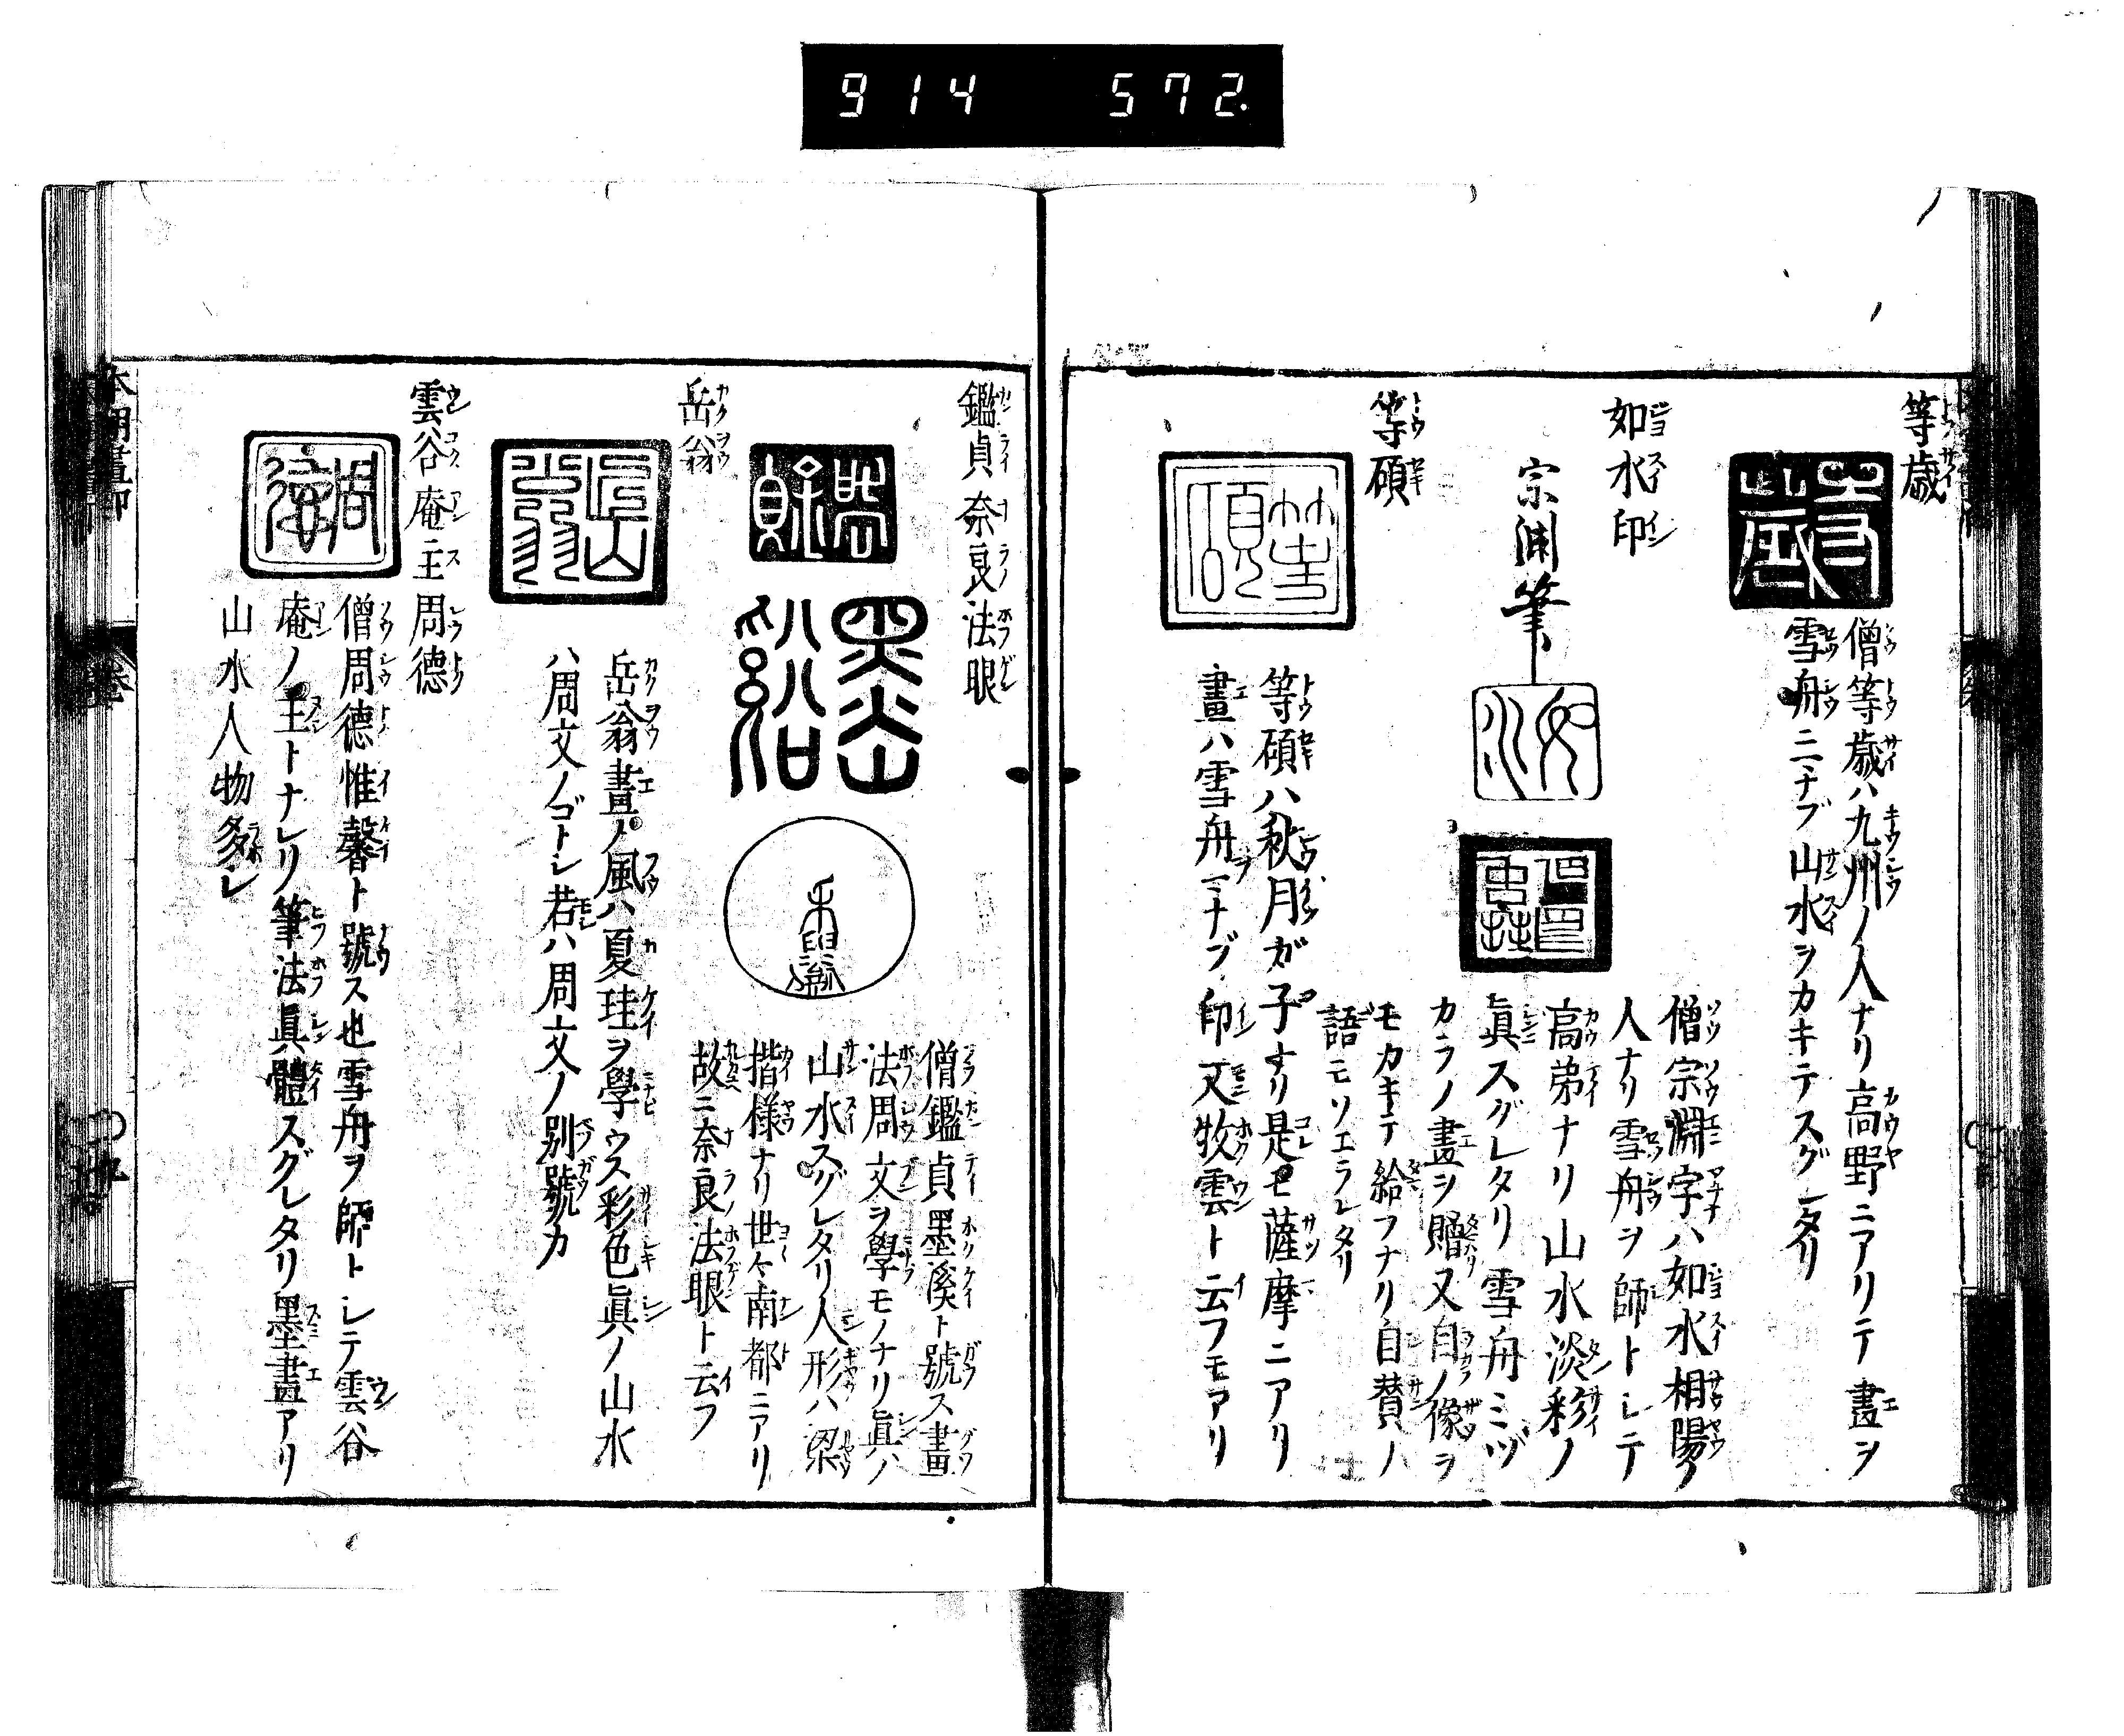 914 572.
等歳
僧等歳ハ九州ノ人ナリ高野ニアリテ畫ヲ
雪舟ニナブ山水ヲカキテスグレタリ
如水印
宗淵筆
僧宗淵字ハ如水相陽ノ
人ナリ雪舟ヲ師トシテ
高弟ナリ山水淡彩ノ
眞スグレタリ雪舟ミヅ
カラノ畫ヲ贈又自ノ像ヲ
モカキテ給フナリ自賛ノ
語モソエラレタリ
等碩
等碩
等碩ハ秋月ガ子ナリ是モ薩摩ニアリ
畫ハ雪舟ヲマナブ印文牧雲ト云フモアリ
鑑貞奈良法眼
墨溪
僧鑑貞墨溪ト號ス畫
法周文ヲ學モノナリ眞ハ
山水スグレタリ人形ハ梁
揩様ナリ世々南都ニアリ
故ニ奈良法眼ト云フ
岳翁
岳翁
岳翁畫ノ風ハ夏珪ヲ學ウス彩色眞ノ山水
ハ周文ノゴトシ若ハ周文ノ別號カ
雲谷庵主周德
僧周德惟馨ト號ス也雪舟ヲ師トシテ雲谷
庵ノ主トナレリ筆法眞體スグレタリ墨畫アリ
山水人物多シ